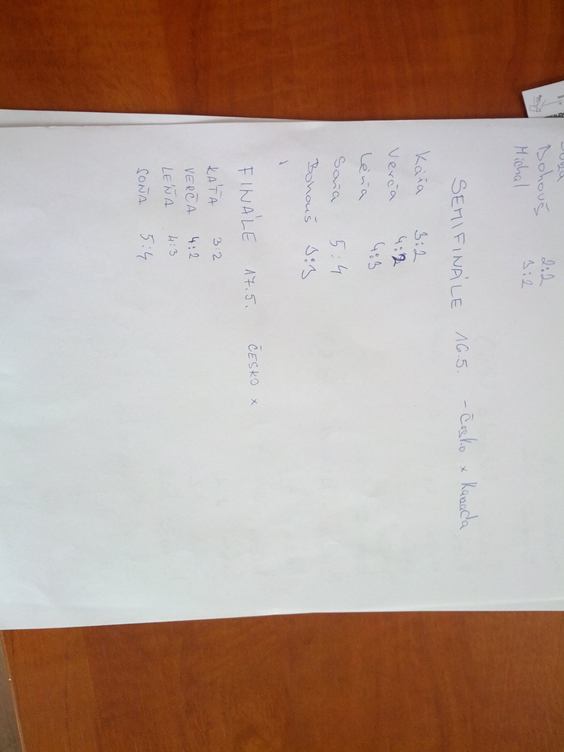 Bohouš 2:2
Michal 3:2
SEMIFINÁLE 16.5. - Česko x Kanada
Káťa 3:2
Verča 4:2
Léňa 4:3
Soňa 5:4
Bohouš 3:3
FINÁLE 17.5. ČESKO x
KÁŤA 3:2
VERČA 4:2
LÉŇA 4:3
SOŇA 5:4